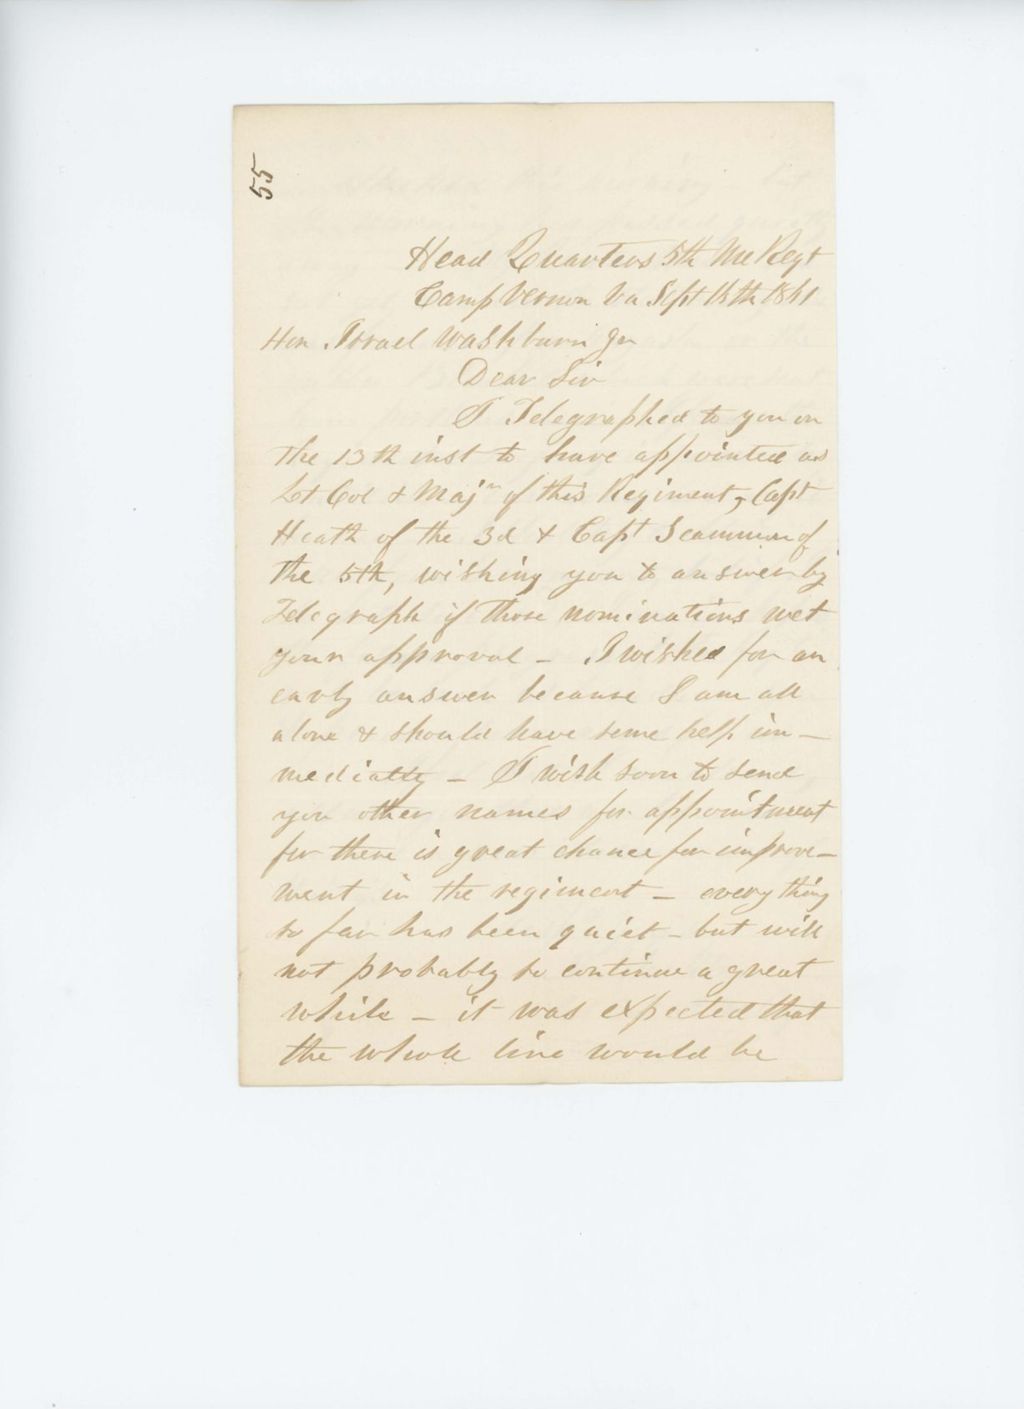 55
Head Quarters 5th Me Regt
Camp Vernon Va Sept 15th 1861
Hon Israel Washburn Jr
Dear Sir
I Telegraphed to you on
the 13th inst to have appointed as
Lt Col & Majr of this Regiment, Capt
Heath of the 3d & Capt Scamman of
the 5th, wishing you to answer by
Telegraph if those nominations met
your approval - I wished for an
early answer because I am all
alone & should have some help im-
mediatly - I wish soon to send
you other names for appointment
for there is great chance for improve-
ment in the regiment - every thing
so far has been quiet - but will
not probably so continue a great
while - it was expected that
the whole line would be